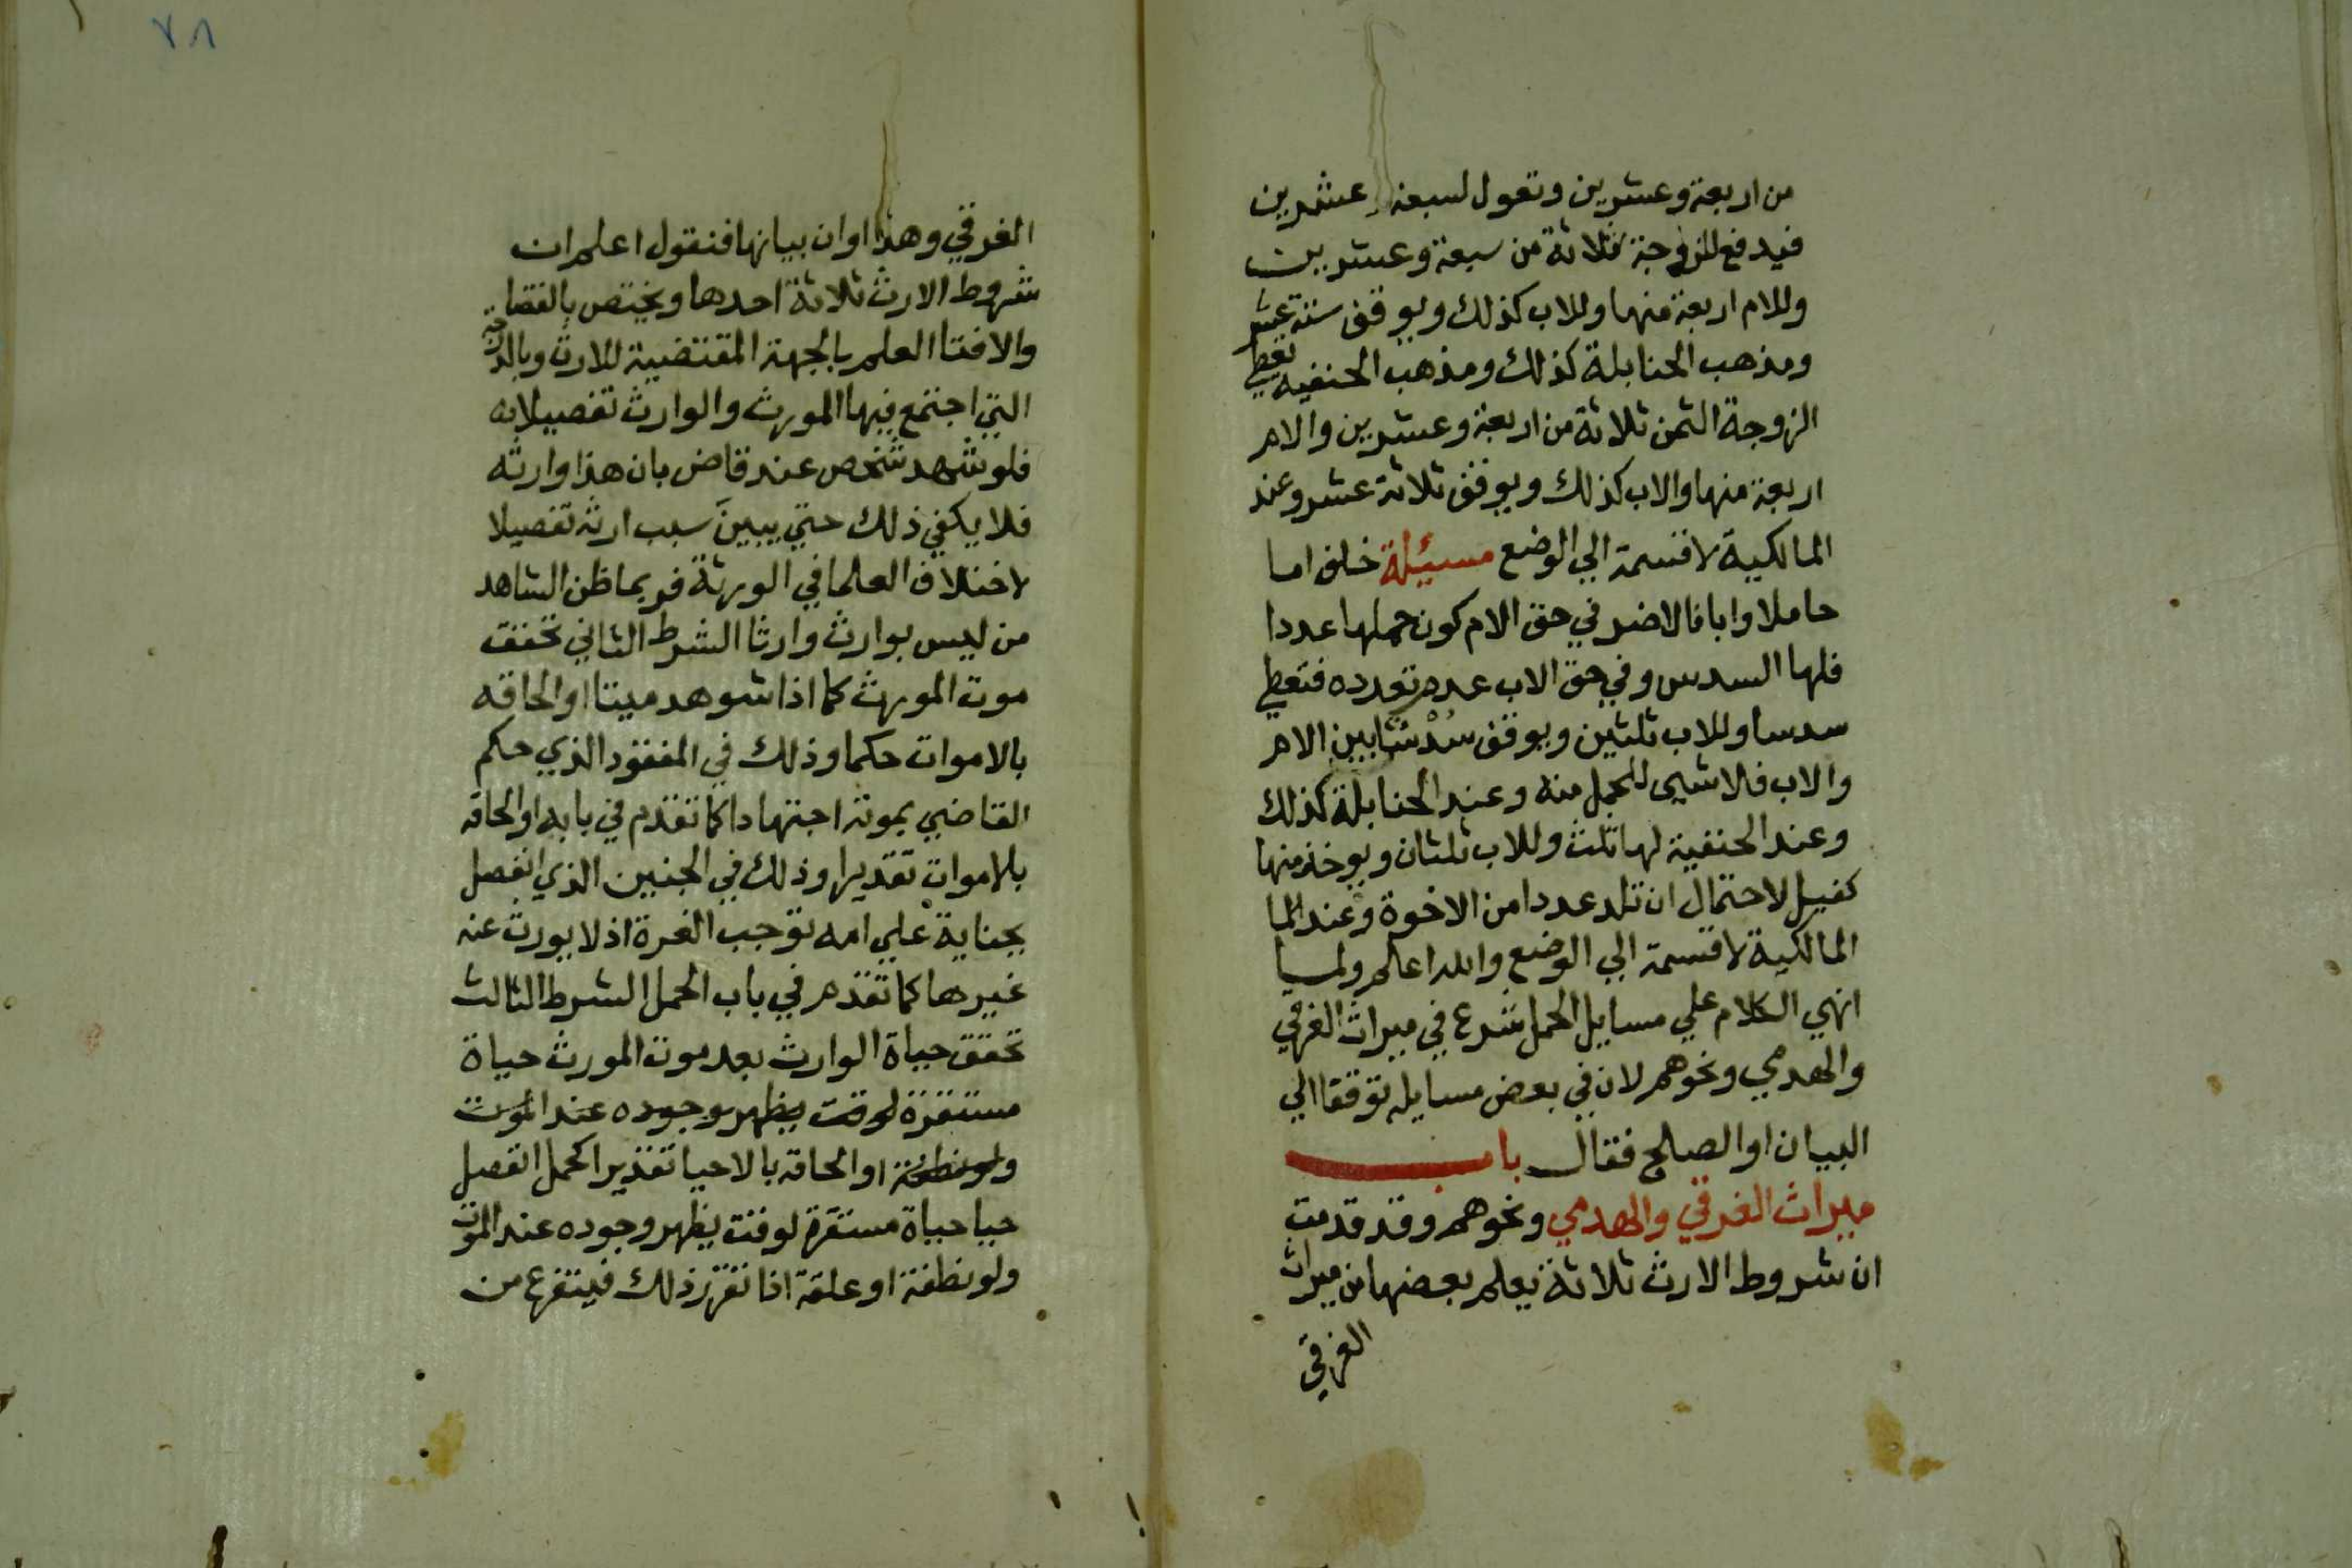 من اربعة وعشرين وتعول لسبعة وعشرين
فيدفع للزوجة ثلاثة من سبعة وعشرين
وللام اربعة منها وللاب كذلك ويوقف ستة عشر
ومذهب الحنابلة كذلك ومذهب الحنفية تعطي
الزوجة الثمن ثلاثة من اربعة وعشرين والام
اربعة منها والاب كذلك ويوقف ثلاثة عشر وعند
المالكية لا قسمة الي الوضع مسيئلة خلف اما
حاملا وابا فالاضر في حق الام كون حملها عددا
فلها السدس وفي حق الاب عدم تعدده فتعطي
سدسا وللاب ثلثين ويوقف سدسا بين الام
والاب فلا شيى للحمل منه وعند الحنابلة كذلك
وعند الحنفية لها ثلث وللاب ثلثان ويوخذ منها
كفيل لاحتمال ان تلد عددا من الاخوة وعند الما
المالكية لا قسمة الي الوضع والله اعلم ولما
انهي الكلام علي مسايل الحمل شرع في ميراث الغرقي
والهدمي ونحوهم لان في بعض مسايله توقفا الي
البيان او الصلح فقال باب
ميراث الغرقي والهدمي ونحوهم وقد قدمت
ان شروط الارث ثلاثة يعلم بعضها من ميراث
الغرقي
٧٨
الغرقي وهذا اوان بيانها فنقول اعلم ان
شروط الارث ثلاثة احدها ويختص بالقضا
والافتا العلم بالجهة المقتضية للارث وبالدرجة
التي اجتمع فيها المورث والوارث تفصيلا به
فلو شهد شخص عند قاض بان هذا وارثه
فلا يكفي ذلك حتي يبينَ سبب ارثه تفصيلا
لاختلاف العلما في الورثة فربما ظن الشاهد
من ليس بوارث وارثا الشرط الثاني تحقق
موت المورث كما اذا شوهد ميتا او الحاقه
بالاموات حكما وذلك في المفقود الذي حكم
القاضي بموته اجتهادا كما تقدم في بابه او الحاقه
بلاموات تقديرا وذلك في الجنين الذي انفصل
بجناية علي امه توجب الغرة اذ لا يورث عنه
غيرها كما تقدم في باب الحمل الشرط الثالث
تحقق حياة الوارث بعد موت المورث حياة
مستقرة لوقت يظهر وجوده عند الموت
ولو نطفة او الحاقه بالاحيا تقديرا كحمل انفصل
حيا حياة مستقرة لوقت يظهر وجوده عند الموت
ولو نطفة او علقة اذا تقرر ذلك فيتفرع من